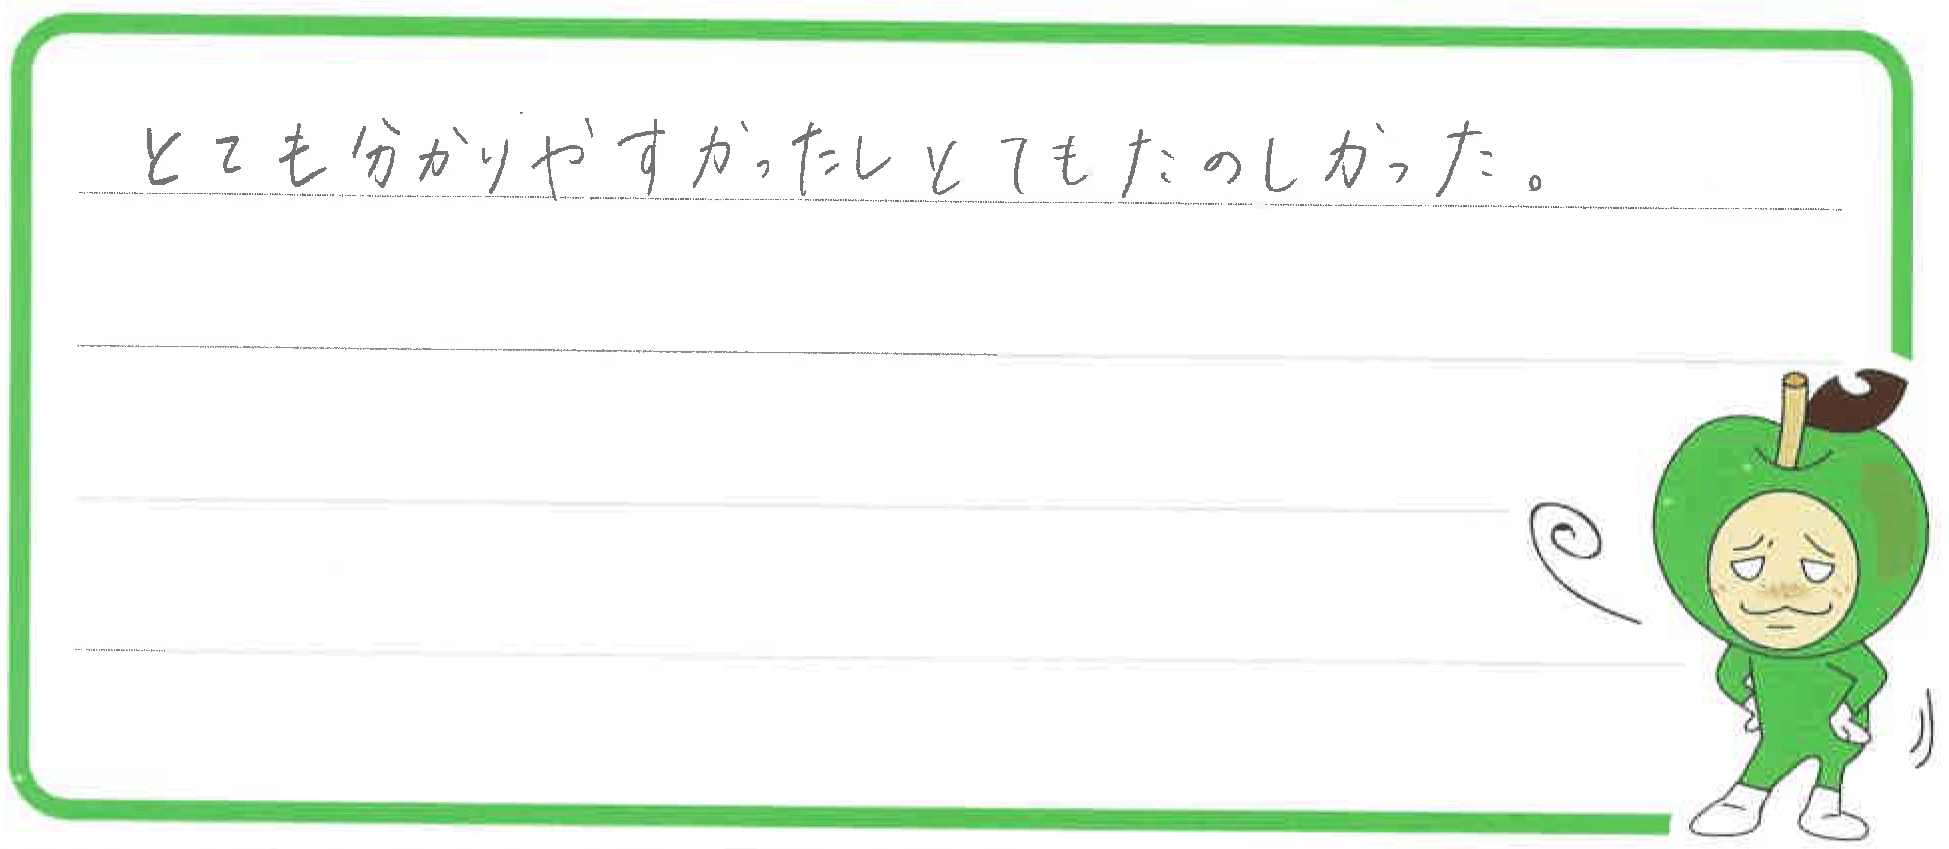 とても分かりやすかったしとてもたのしかった。